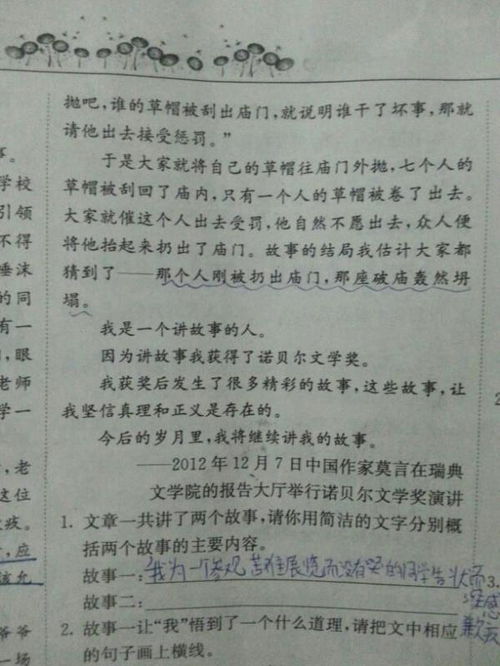 抛吧，谁的草帽被刮出庙门，就说明谁干了坏事，那就
请他出去接受惩罚。”
于是大家就将自己的草帽往庙门外抛，七个人的
草帽被刮回了庙内，只有一个人的草帽被卷了出去。
大家就催这个人出去受罚，他自然不愿出去，众人便
将他抬起来扔出了庙门。故事的结局我估计大家都
猜到了——那个人刚被扔出庙门，那座破庙轰然坍
塌。
我是一个讲故事的人。
因为讲故事我获得了诺贝尔文学奖。
我获奖后发生了很多精彩的故事，这些故事，让
我坚信真理和正义是存在的。
今后的岁月里，我将继续讲我的故事。
——2012年12月7日中国作家莫言在瑞典
文学院的报告大厅举行诺贝尔文学奖演讲
1. 文章一共讲了两个故事，请你用简洁的文字分别概
括两个故事的主要内容。
故事一：我为一个参观苦难展览而没有哭的同学告状而
深感
歉疚
故事二：
2. 故事一让“我”悟到了一个什么道理，请把文中相应
的句子画上横线。
事。
学校
引领
不得
唾沫
的同
有一
，眼
老师
学一
，老
这位
疚。
，应
该允
爷爷
一场
3.
2